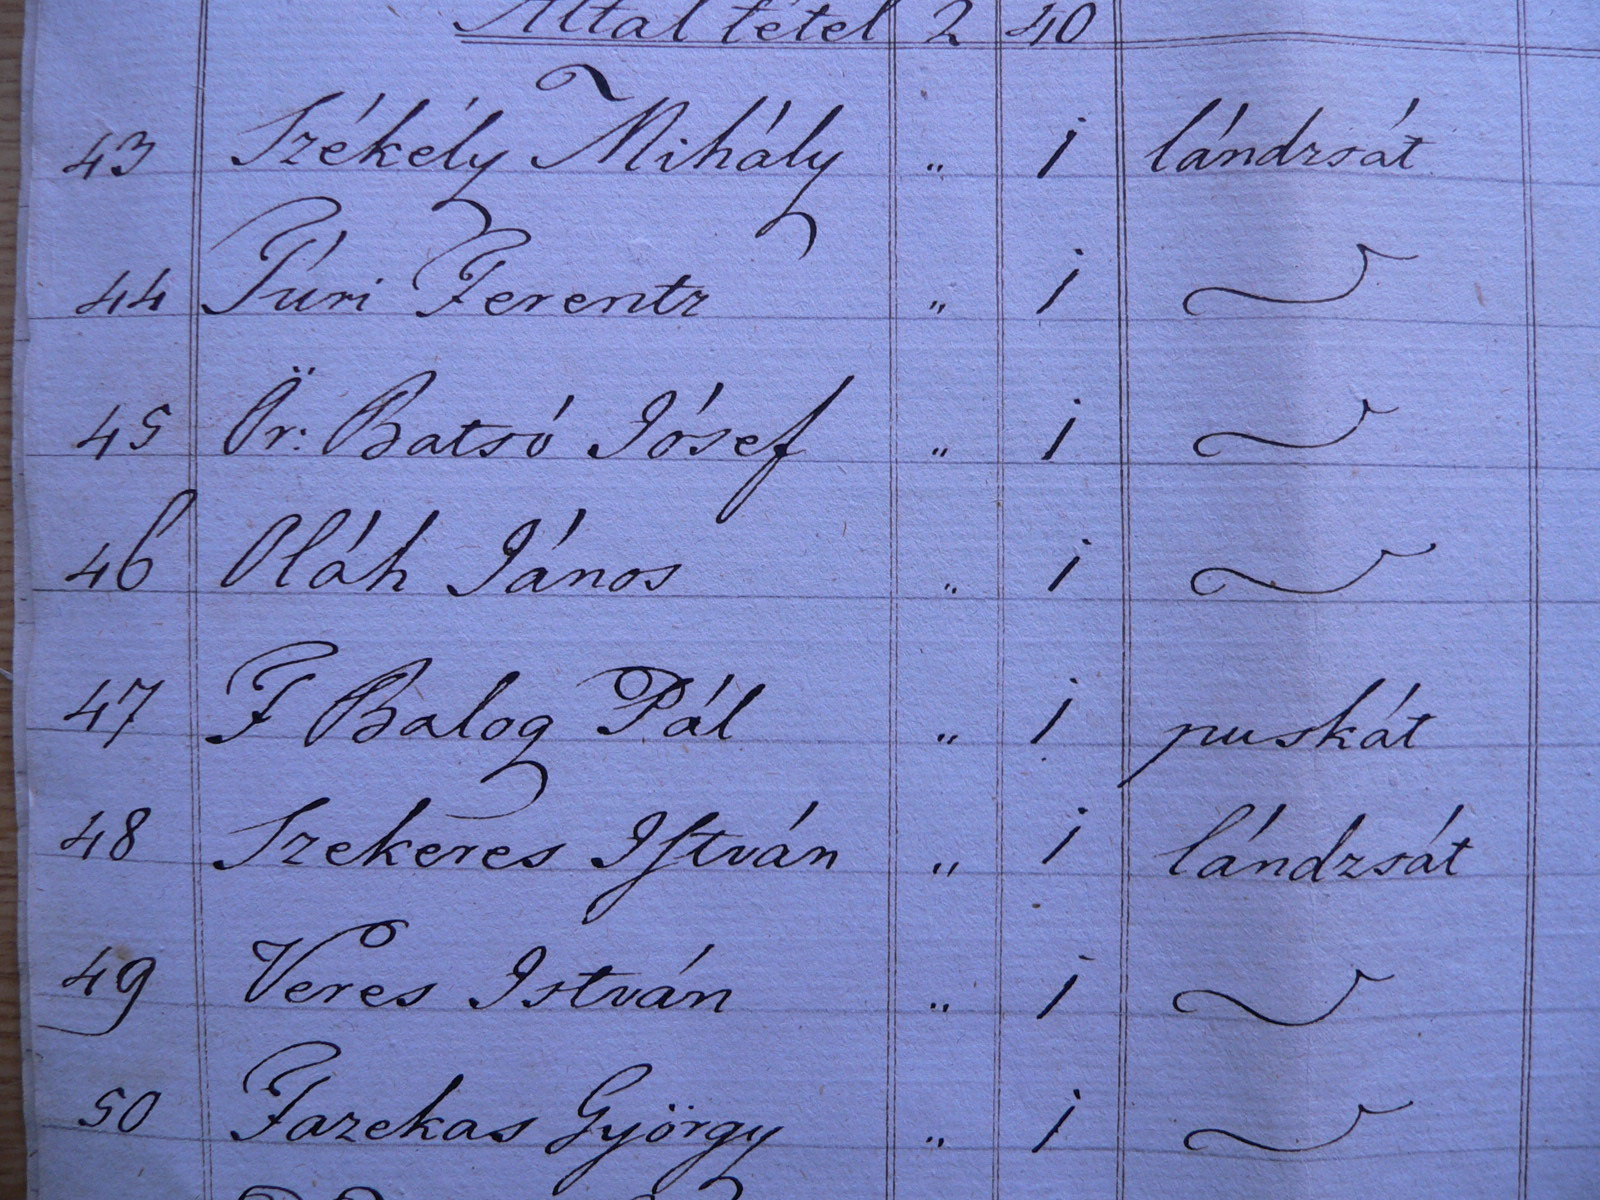 Által tétel 2 40
43 Székély Mihály " 1 lándzsát
44 Túri Ferentz " 1 ~
45 Ör: Batsó Jósef " 1 ~
46 Oláh János " 1 ~
47 F Balog Pál " 1 puskát
48 Szekeres István " 1 lándzsát
49 Veres István " 1 ~
50 Fazekas György " 1 ~